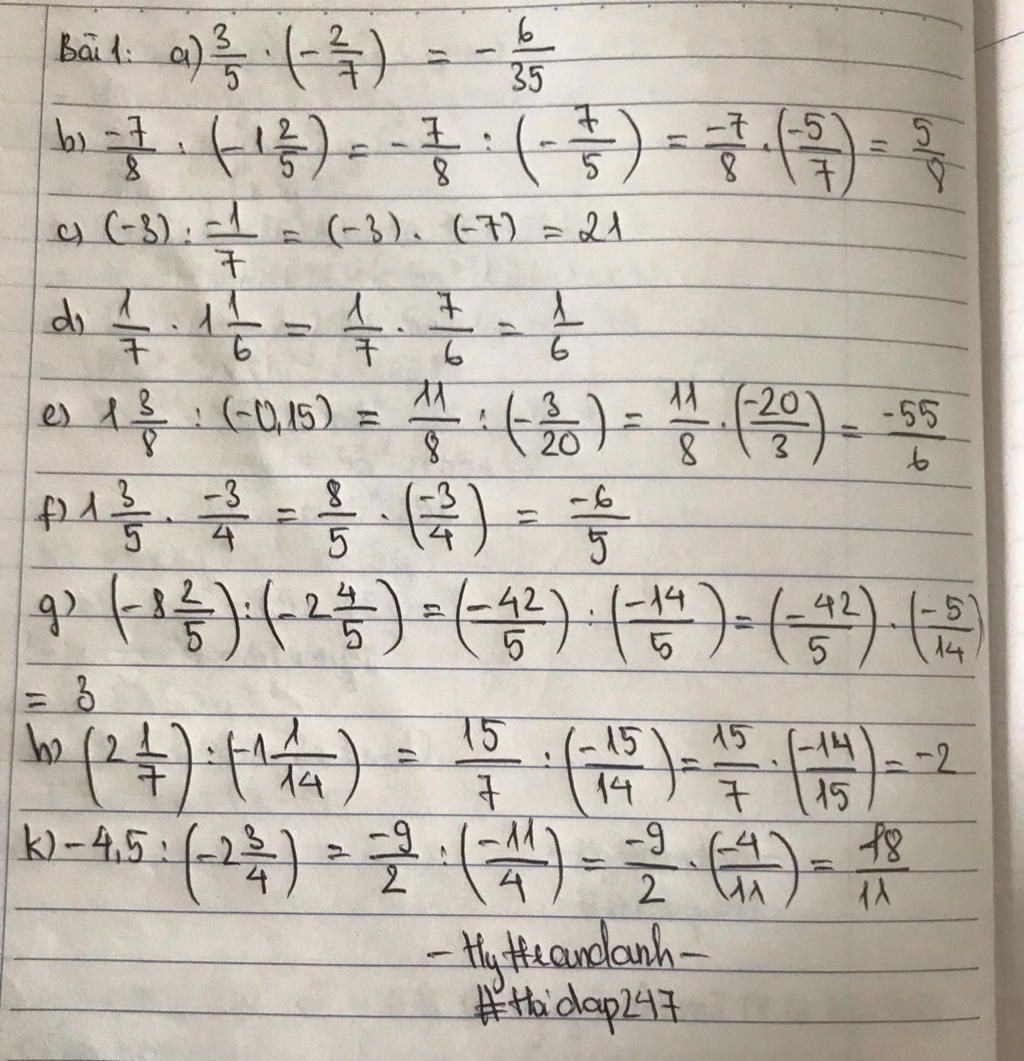 Bài 1: a) 3/5 · (-2/7) = -6/35
b) -7/8 : (-1 2/5) = -7/8 : (-7/5) = -7/8 · (-5/7) = 5/8
c) (-3) : -1/7 = (-3) · (-7) = 21
d) 1/7 · 1 1/6 = 1/7 · 7/6 = 1/6
e) 1 3/8 : (-0,15) = 11/8 : (-3/20) = 11/8 · (-20/3) = -55/6
f) 1 3/5 · -3/4 = 8/5 · (-3/4) = -6/5
g) (-8 2/5) : (-2 4/5) = (-42/5) : (-14/5) = (-42/5) · (-5/14)
= 3
h) (2 1/7) : (-1 1/14) = 15/7 : (-15/14) = 15/7 · (-14/15) = -2
k) -4,5 : (-2 3/4) = -9/2 : (-11/4) = -9/2 · (-4/11) = 18/11
#Hoidap247